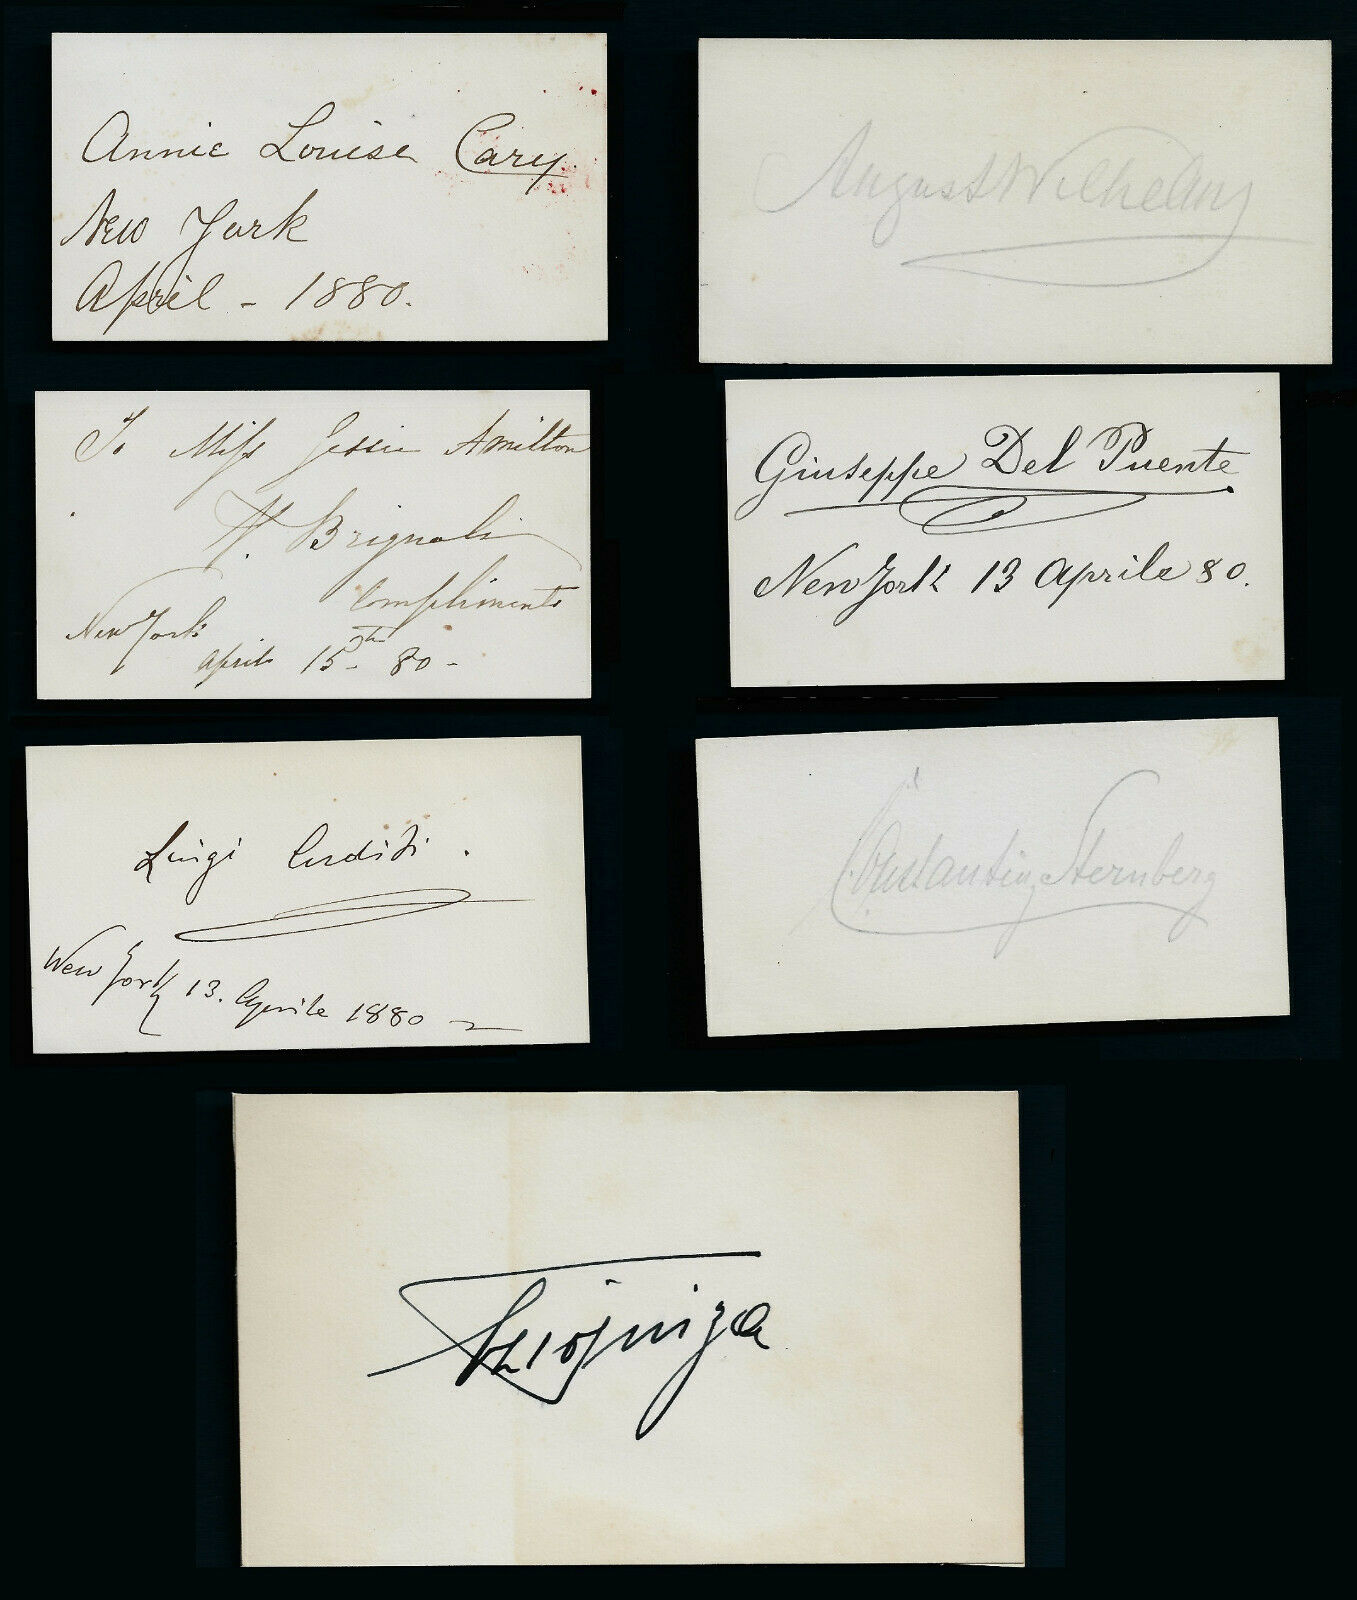 Annie Louise Cary
New York
April - 1880.
August Wilhelmj
To Miss Jessie Amilton
Brignoli
Compliments
New York
April 15th - 80 -
Giuseppe Del Puente
New York 13 Aprile 80.
Luigi Arditi.
New York 13. Aprile 1880
Constantin Sternberg